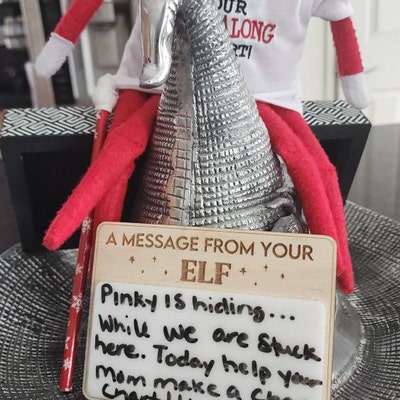 OUR
ALONG
A MESSAGE FROM YOUR
ELF
Pinky is hiding...
While we are stuck
here. Today help your
mom make a
chart